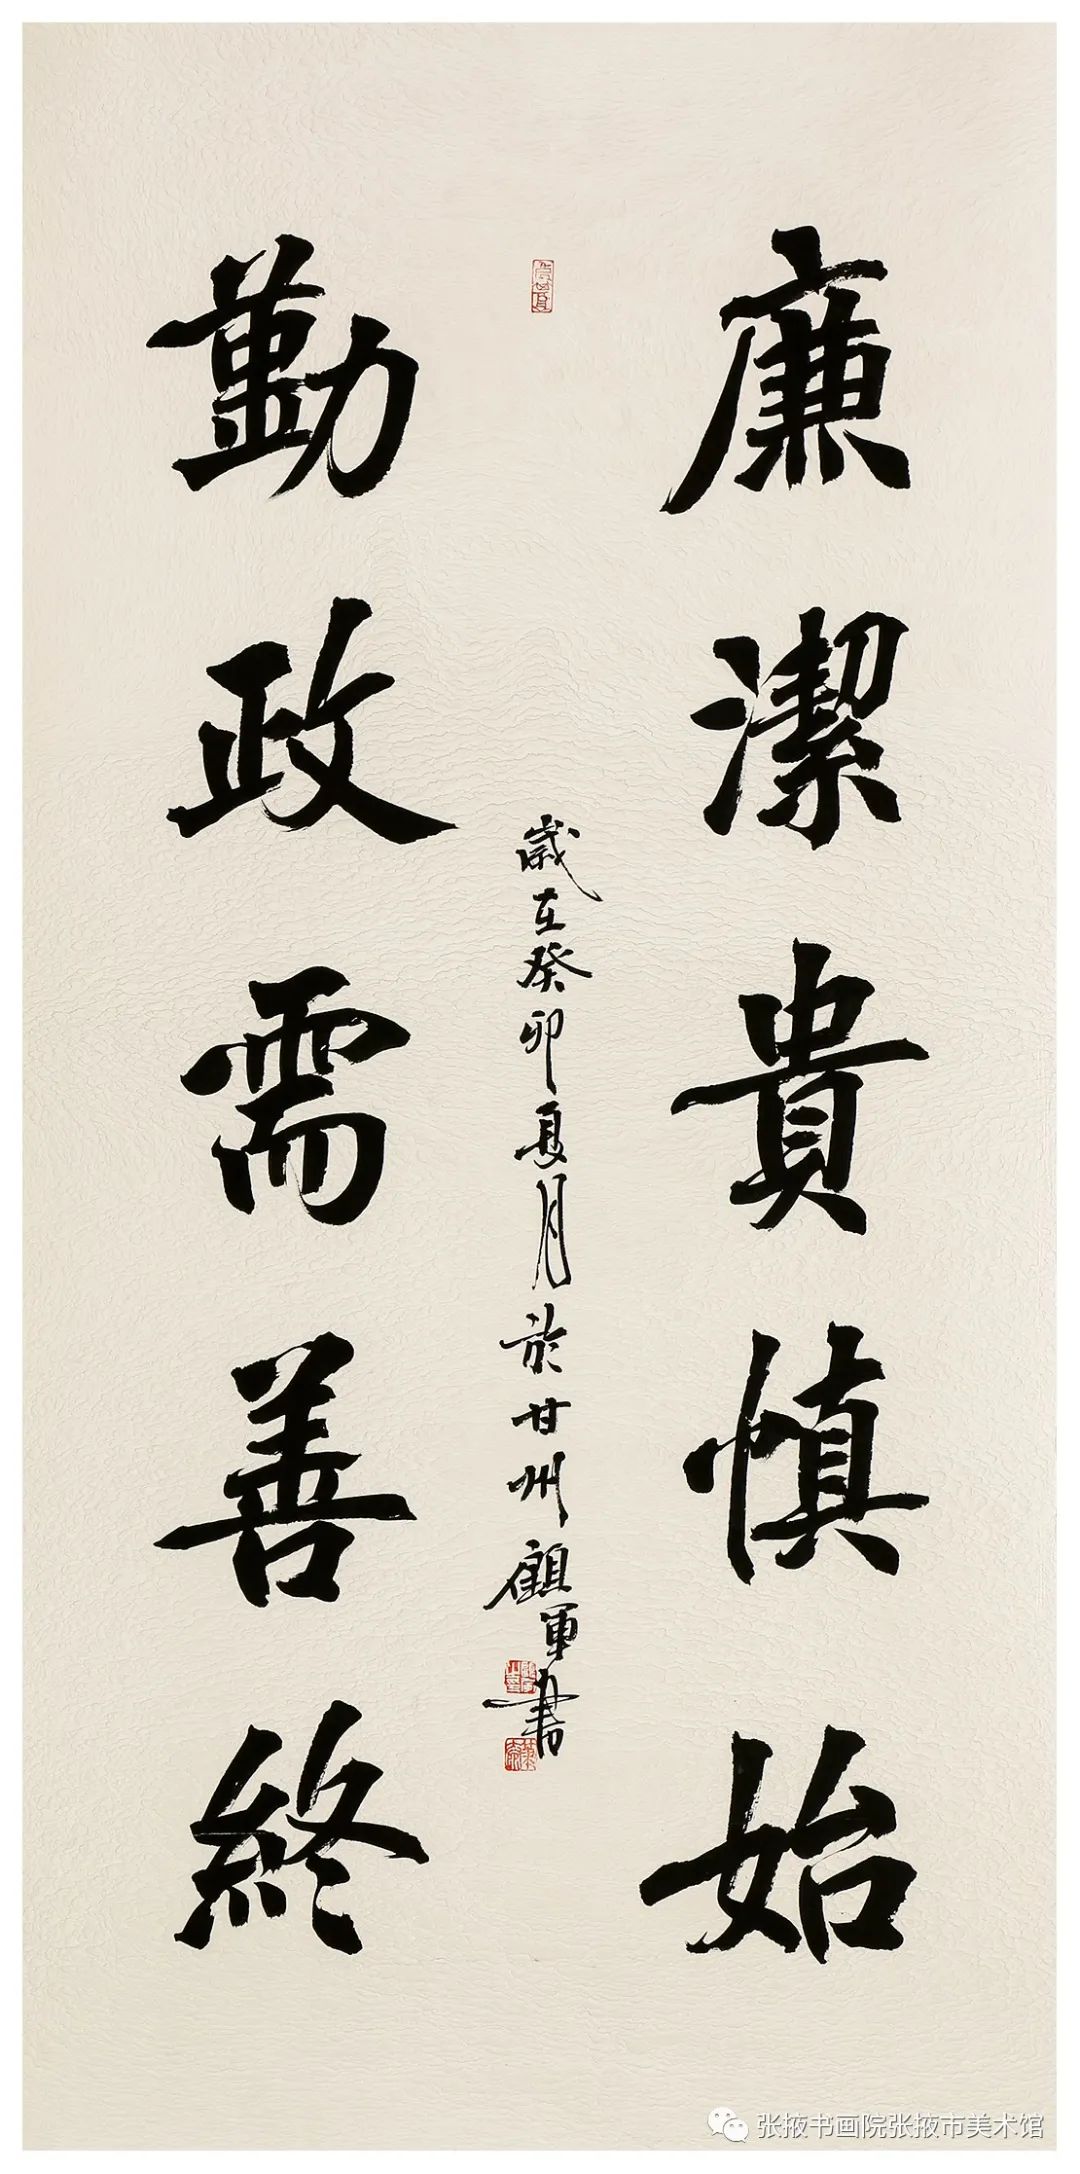 廉潔貴慎始
勤政需善終
歲在癸卯夏月於甘州顧軍書
张掖书画院张掖市美术馆